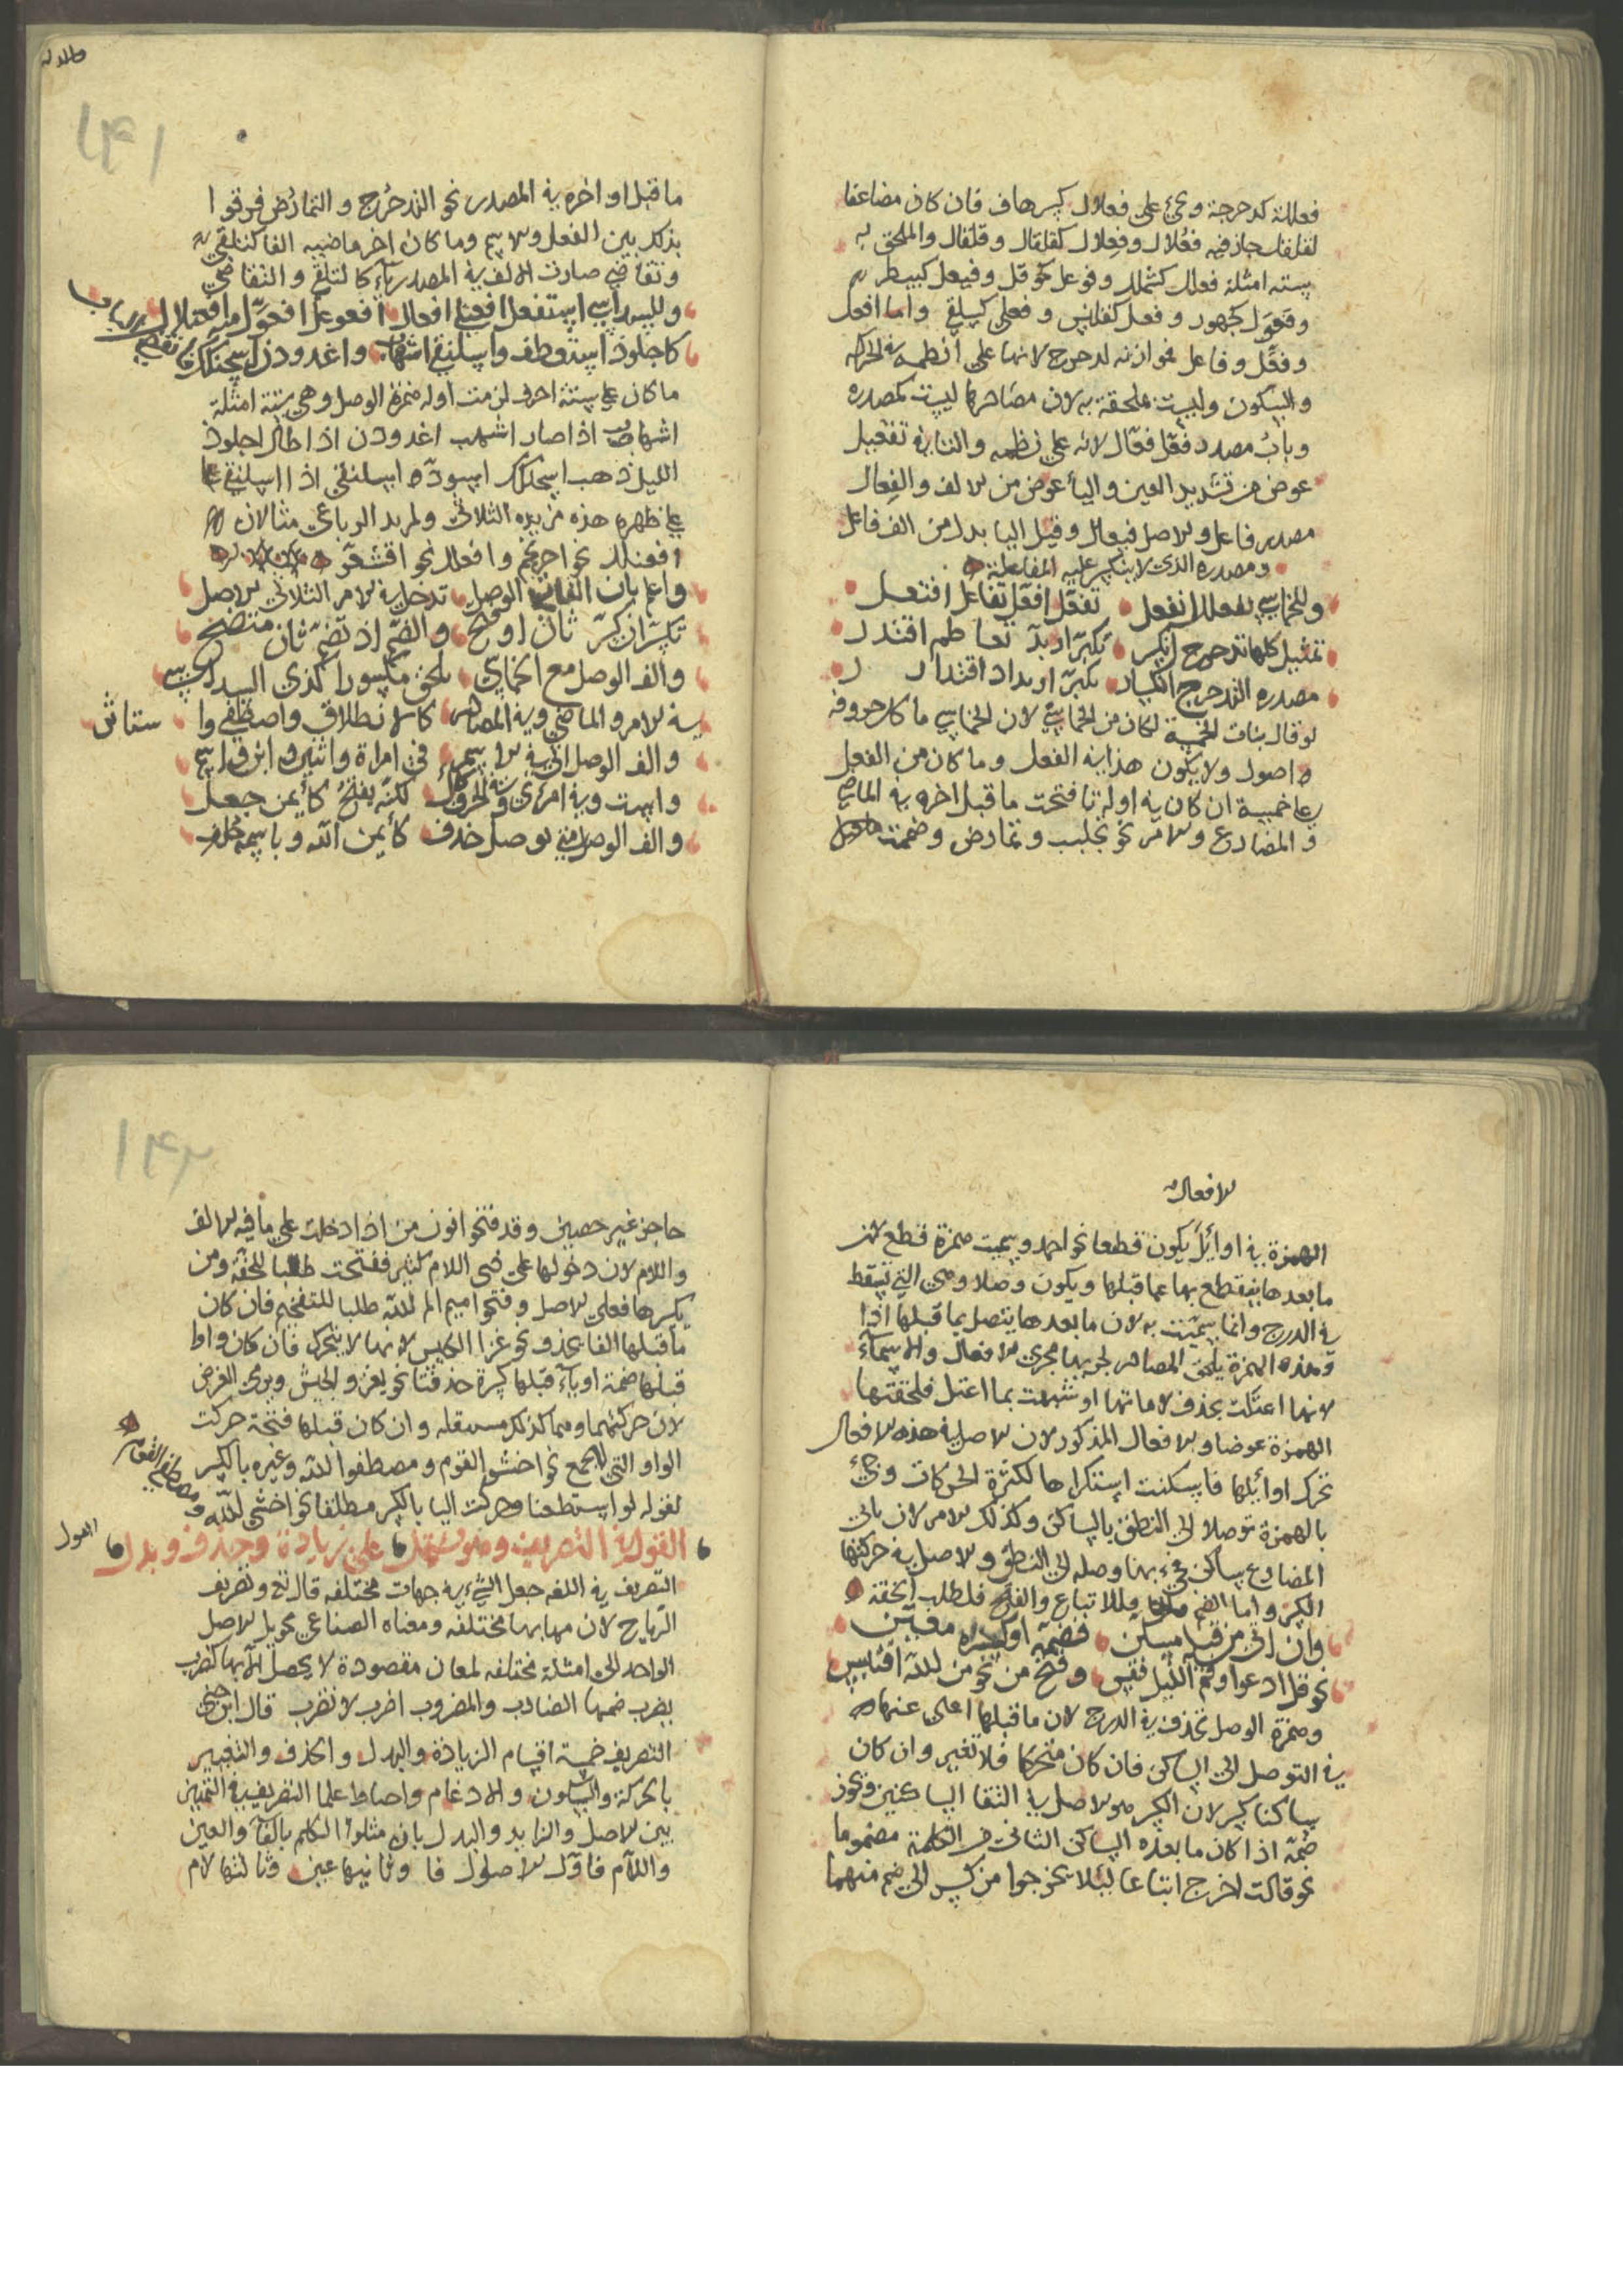 فعللته كدحرجة ويجئ على فعلال كسرهاف فان كان مضاعفا
لقلقلت جاز فيه فعلال وفعلال كقلقال وقلقال والملحق به
ستة امثلة فعلل كشملل وفوعل كحوقل وفيعل كبيطر
وفعول كجهور وفعنل كقلنس وفعلى كسلقى واما افعل
وفعّل وفاعل فموازنه لدحرج لانها على انظمه في الحركه
والسكون وليست ملحقة به لان مصادرها ليست كمصدره
وباب مصدر فعّل فعّال لانه على نظمه والتا في تفعيل
عوض من تشديد العين واليأ عوض من الالف والفعال
مصدر فاعل والاصل فيعال وقيل اليا بدل من الف فاعل
ومصدره الذي لا ينكسر عليه المفاعلة
وللخماسي تفعلل انفعل تفعّل افعلّ تفاعل افتعل
تمثيل كلها تدحرج انكسر تكبّر اربدّ تعاظم اقتدر
مصدره التدحرج انكسار تكبّر اربداد اقتدار
لو قال بنات الخمسة لكان من الخماسي لان الخماسي ما كل حروفه
اصول ولا يكون هذا في الفعل وما كان من الفعل
على خمسة ان كان في اوله تا فتحت ما قبل اخره في الماضي
والمضارع والامر نحو تجلبب وتمارض وضممت
ما قبل اواخره في المصدر نحو التدحرج والتمارض فرقوا
بذلك بين الفعل والاسم وما كان اخر ماضيه الفا كتلقى
وتقاضى صارت الالف في المصدر يآء كالتلقي والتقاضي
وللسداسي استفعل افعنلى افعال افعوعل افعوّل مع افعنلال
كاجلوذ استوطف واسلنقى اشهاب واغدودن اسحنكك
ما كان على ستة احرف لزمت اوله همزة الوصل وهي ستة امثلة
اشهاب اذا صار اشهب اغدودن اذا طال اجلوذ
الليل ذهب اسحنكك اسودّ اسلنقى اذا استلقى
على ظهره هذه مزيده الثلاثي ولمزيد الرباعي مثالان
افعنلل نحو احرنجم وافعلل نحو اقشعرّ
واعلم بان الفات الوصل تدخل في الامر الثلاثي الاصل
تكسر ان كسر ثان او فتح والضم اذ تضم ثان متضح
والف الوصل مع الخماسي تلحق مكسورا كذي السداسي
في الامر والماضي وفي المصادر كالانطلاق واصطفى واستاثر
والف الوصل اتى في الاسم في امراة واثنين وابن واسم
واست وفي امرئ وفي الحرف كأل لكنه بفتح كأيمن جعل
والف الوصل متى توصل حذف كأيمن الله وباسمه حلف
الافعال
الهمزة في اوائل يكون قطعا نحو احمد وسميت همزة قطع لان
ما بعدها ينقطع بها عما قبلها ويكون وصلا وهي التي تسقط
في الدرج وانما سميت به لان ما بعدها يتصل بما قبلها اذا
وهذه الهمزة يلحق المصادر لجريها مجرى الافعال والاسمآء
لانها اعتلت بحذف لاماتها او شبهت بما اعتل فلحقتها
الهمزة عوضا والافعال المذكور لان الاصل في هذه الافعال
تحرك اوائلها فاسكنت استكراها لكثرة الحركات وجئ
بالهمزة توصلا الى النطق بالساكن وكذلك الامر لان ثاني
المضارع ساكن فجئ بها وصله الى النطق والاصل في حركتها
الكسر واما الضم فللاتباع والفتح فلطلب الخفة
وان اتى من قبلها مسكن فضمه او كسره معيّن
نحو قل ادعوا وقم الليل فقس وفتح من نحو من الله اقتبس
وهمزة الوصل تحذف في الدرج لان ما قبلها اغنى عنها
في التوصل الى الساكن فان كان متحركا فلا تغير وان كان
ساكنا كسر لان الكسر هو الاصل في التقا الساكنين ويجوز
ضمّه اذا كان ما بعده الساكن الثاني في الكلمة مضموما
نحو قالت اخرج اتباعا لئلا يخرجوا من كسر الى ضم منهما
حاجز غير حصين وقد فتحوا نون من اذا دخلت على ما فيه الالف
واللام لان دخولها على ذي اللام كثير ففتحت طلبا للخفة ومن
يكسرها فعلى الاصل وفتحوا ميم الم الله طلبا للتفخيم فان كان
ما قبلها الفا يحذف نحو غزا الجيش لانها لا يتحرك فان كان واوا
قبلها ضمة او يآء قبلها كسرة حذفتا نحو يغزو الجيش ويرمي الغرض
لان حركتهما وهما كذلك مستقله وان كان قبلها فتحة حركت
الواو التي للجمع نحو اخشو القوم ومصطفوا الله وغيره بالكسر
لقوله لو استطعنا وحركت اليا بالكسر مطلقا نحو اخشي الله
القول في التصريف وهو يشتمل على زيادة وحذف وبدل
التصريف في اللغه جعل الشيء في جهات مختلفه قال تع وتصريف
الرياح لان مهابها مختلفه ومعناه الصناعي تحويل الاصل
الواحد الى امثلة مختلفه لمعان مقصودة لا يحصل الا بها كضرب
يضرب ضمها الضارب والمضروب اضرب لا تضرب قال ابن جني
التصريف خمسة اقسام الزيادة والبدل والحذف والتغيير
بالحركة والسكون والادغام واحتاط علما التصريف في التمييز
بين الاصل والزايد والبدل بان مثلوا الكلم بالفآ والعين
واللآم فاول الاصول فا وثانيها عين وثالثها لام